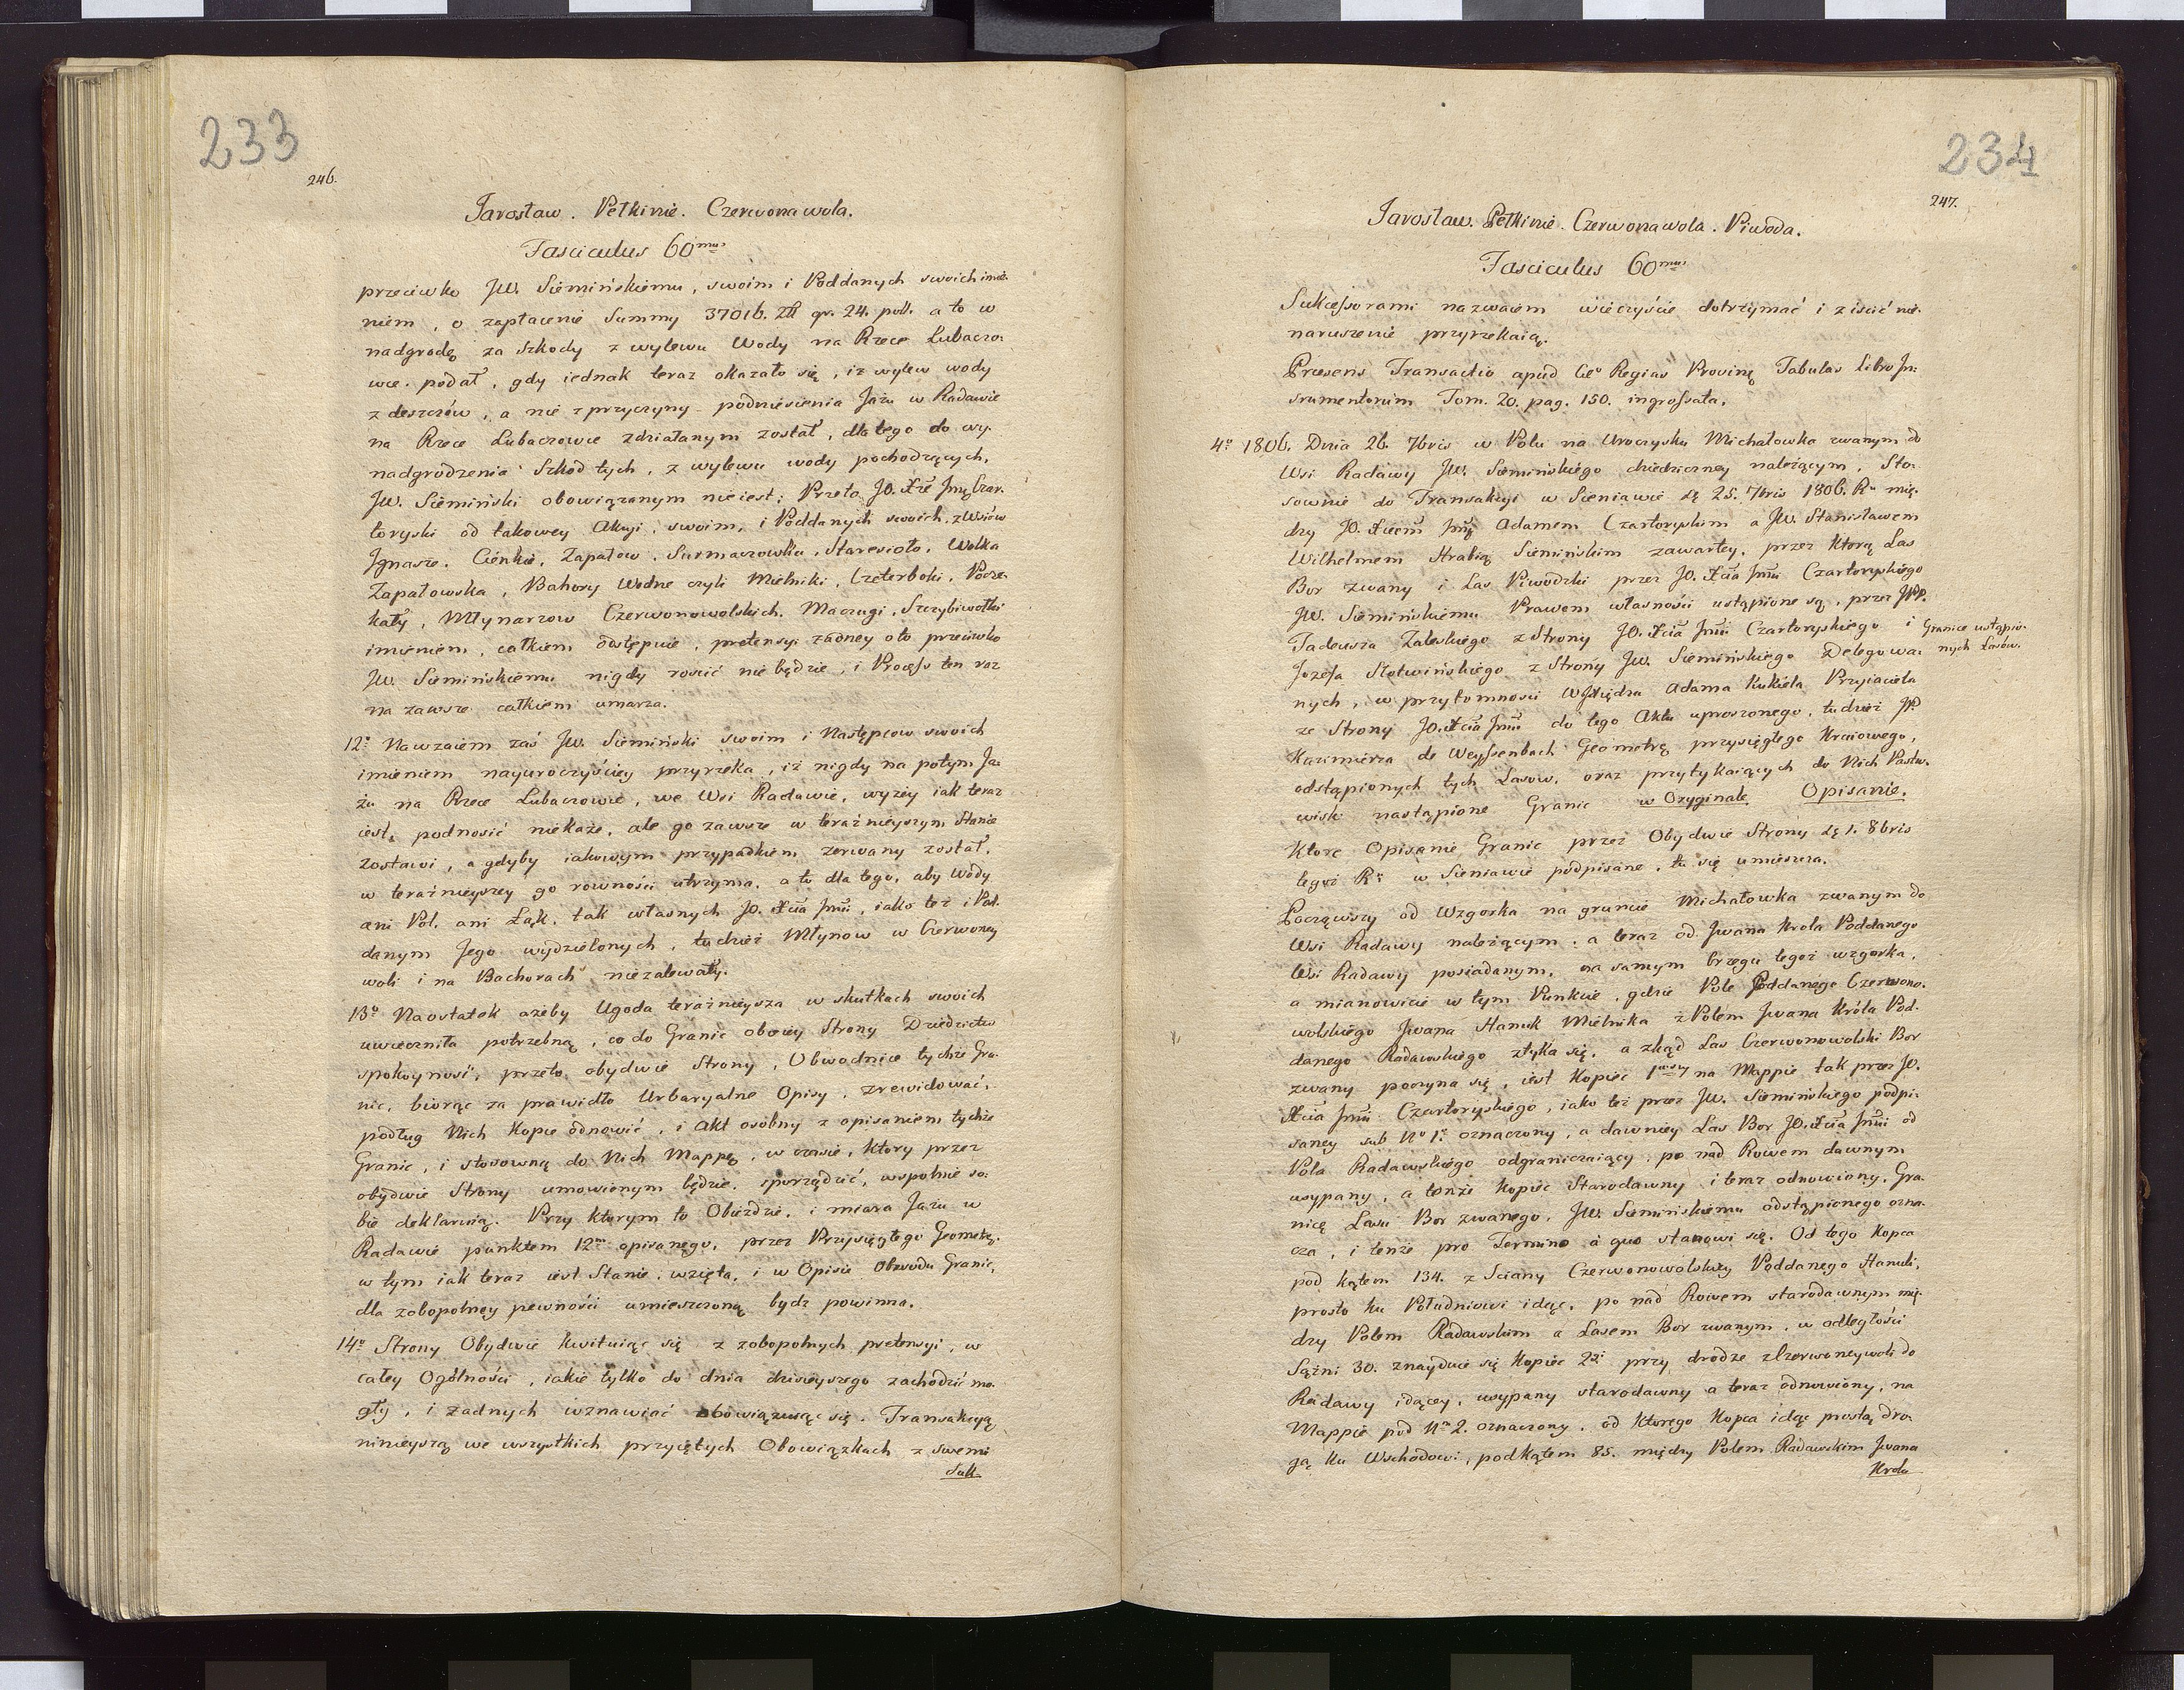 233
246.
Jarosław. Pełkinie. Czerwonawola.
Fasciculus 60mus
przeciwko JW. Siemińskiemu, swoim i Poddanych swoich imie-
niem, o zapłacenie Summy 37016. Zł gr. 24. poll. a to w
nadgrodę za Szkody z wylewu Wody na Rzece Lubaczo-
wce podał, gdy iednak teraz okazało się, iż wylew wody
z deszczów, a nie z przyczyny podniesienia Jazu w Radawie
na Rzece Lubaczowce zdziałanym został, dla tego do wy-
nadgrodzenia Szkód tych, z wylewu wody pochodzących,
JW. Siemiński obowiązanym nie iest; Przeto JO. Xże Jmę Czar-
toryski od takowey Akcyi, swoim, i Poddanych swoich, z Wsiów
Ignasze. Cienkie, Zapałow. Surmaczowka, Staresioło, Wolka
Zapałowska, Bahory Wodne czyli Mielniki, Czeterboki, Pocze-
kały, Młynarzow Czerwonowolskich. Maczugi, Szczybiwołki
imieniem, całkiem odstępuie, pretensyi żadney oto przeciwko
JW. Siemińskiemu nigdy rościć nie będzie, i Process ten raz
na zawsze całkiem umarza.
12o Nawzaiem zaś JW. Siemiński swoim i Następcow swoich
imieniem nayuroczyściey przyrzeka, iż nigdy na potym Ja-
zu na Rzece Lubaczowce, we Wsi Radawie, wyżey iak teraz
iest, podnosić niekaże, ale go zawsze w teraźnieyszym Stanie
zostawi, a gdyby iakowym przypadkiem zerwany został,
w teraźnieyszey go rowności utrzyma, a to dla tego, aby Wody
ani Pol. ani Łąk, tak własnych JO. Xcia Jmci, iako też i Pod-
danym Jego wydzielonych, tudzież Młynow w Czerwoney
woli i na Bachorach niezalewały.
13o Naostatek ażeby Ugoda teraźnieysza w skutkach swoich
uwieczniła potrzebną, co do Granic obocey Strony Dziedzictw
spokoyność, przeto obydwie Strony, Obwodnice tychże Gra-
nic, biorąc za prawidło Urbaryalne Opisy, zrewidować,
podług Nich Kopce odnowić, i Akt osobny z opisaniem tychże
Granic, i stosowną do Nich Mappę, w czasie, ktory przez
obydwie Strony umowionym będzie, sporządzić, wspolnie so-
bie deklaruią. Przy ktorym to Obieździe, i miara Jazu w
Radawie punktem 12m opisanego, przez Przysięgłego Geometrę
w tym iak teraz iest Stanie, wzięta, i w Opisie Obwodu Granic,
dla zobopolney pewności umieszczoną bydz powinna.
14o Strony Obydwie kwituiąc się z zobopolnych pretensyi, w
całey Ogólności, iakie tylko do dnia dzisieyszego zachodzić mo-
gły, i żadnych wznawiać obowiązuiąc się. Transakcyą
ninieyszą we wszystkich przyiętych Obowiązkach z swemi
Suk-
234
247.
Jarosław. Pełkinie. Czerwonawola. Piwoda.
Fasciculus 60mus
Sukcessorami nazwaiem wieczyście dotrzymać i ziścić nie-
naruszenie przyrzekaią.
Præsens Transactio apud Cæs Regias Provinç Tabulas Libro In-
srumentorum Tom. 20. pag. 150. ingrossata.
4o 1806. Dnia 26. 7bris w Polu na Uroczysku Michałowka zwanym do
Wsi Radawy JW. Siemińskiego dziedziczney należącym, Sto-
sownie do Transakcyi w Sieniawie dę 25. 7bris 1806. Ru mię-
dzy JO. Xciem Jmę Adamem Czartoryskim a JW. Stanisławem
Wilhelmem Hrabią Siemińskim zawartey, przez ktorą Las
Bor zwany i Las Piwodzki przez JO. Xcia Jmci Czartoryskiego
JW. Siemińskiemu Prawem własności ustąpione są, przez JPP.
Tadeusza Zaleskiego z Strony JO. Xcia Jmci Czartoryskiego i
Granice ustąpio-
nych Lasów.
Jozefa Słotwińskiego z Strony JW. Siemińskiego Delegowa-
nych, w przytomności WJXiędza Adama Kukiela Przyiaciela
ze Strony JO. Xcia Jmci do tego Aktu uproszonego, tudzież JP
Kazimierza de Weyssenbach Geometrę przysięgłego Kraiowego,
odstąpionych tych Lasow, oraz przytykaiących do Nich Pastw-
wisk nastąpione Granic w Oryginale Opisanie.
Ktore Opisanie Granic przez Obydwie Strony dę 1. 8bris
tegoż Ru w Sieniawie podpisane, tu się umieszcza.
Począwszy od Wzgorka na gruncie Michałowka zwanym do
Wsi Radawy należącym, a teraz od Jwana Krola Poddanego
Wsi Radawy posiadanym, na samym brzegu tegoż wzgorka,
a mianowicie w tym Punkcie, gdzie Pole Poddanego Czerwono-
wolskiego Jwana Hanuk Mielnika z Polem Jwana Króla Pod-
danego Radawskiego ztyka się, a zkąd Las Czerwonowolski Bor
zwany poczyna się, iest Kopiec 1wszy na Mappie tak przez JO.
Xcia Jmci Czartoryskiego, iako też przez JW. Siemińskiego podpi-
saney sub No 1o oznaczony, a dawniey Las Bor JO. Xcia Jmci od
Pola Radawskiego odgraniczaiący, po nad Rowem dawnym
usypany, a tenże Kopiec Starodawny i teraz odnowiony, Gra-
nicę Lasu Bor zwanego, JW. Siemińskiemu odstąpionego ozna-
cza, i tenże pro Termino à quo stanowi się. Od tego Kopca
pod kątem 134. z Sciany Czerwonowolskiey Poddanego Hanuki,
prosto ku Południowi idąc, po nad Rowem starodawnym mię-
dzy Polem Radawskim a Lasem Bor zwanym, w odległości
Sążni 30. znayduie się Kopiec 2gi przy drodze z Czerwoneywoli do
Radawy idącey, usypany starodawny a teraz odnowiony, na
Mappie pod No 2. oznaczony, od ktorego Kopca idąc prostą dro-
gą ku Wschodowi, pod kątem 85. między Polem Radawskim Jwana
Krola